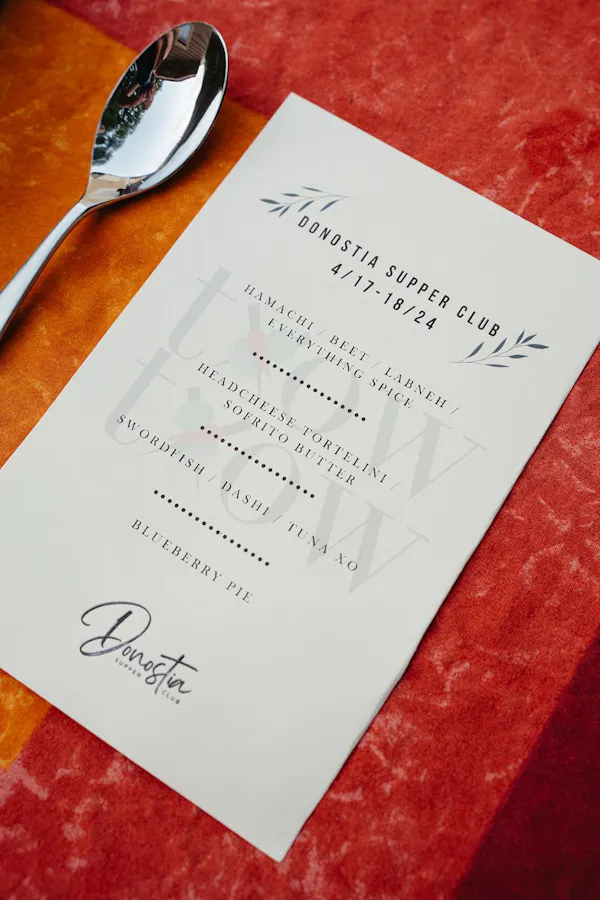 DONOSTIA SUPPER CLUB
4/17-18/24
HAMACHI / BEET / LABNEH /
EVERYTHING SPICE
HEADCHEESE TORTELINI /
SOFRITO BUTTER
SWORDFISH / DASHI / TUNA XO
BLUEBERRY PIE
Donostia
SUPPER CLUB